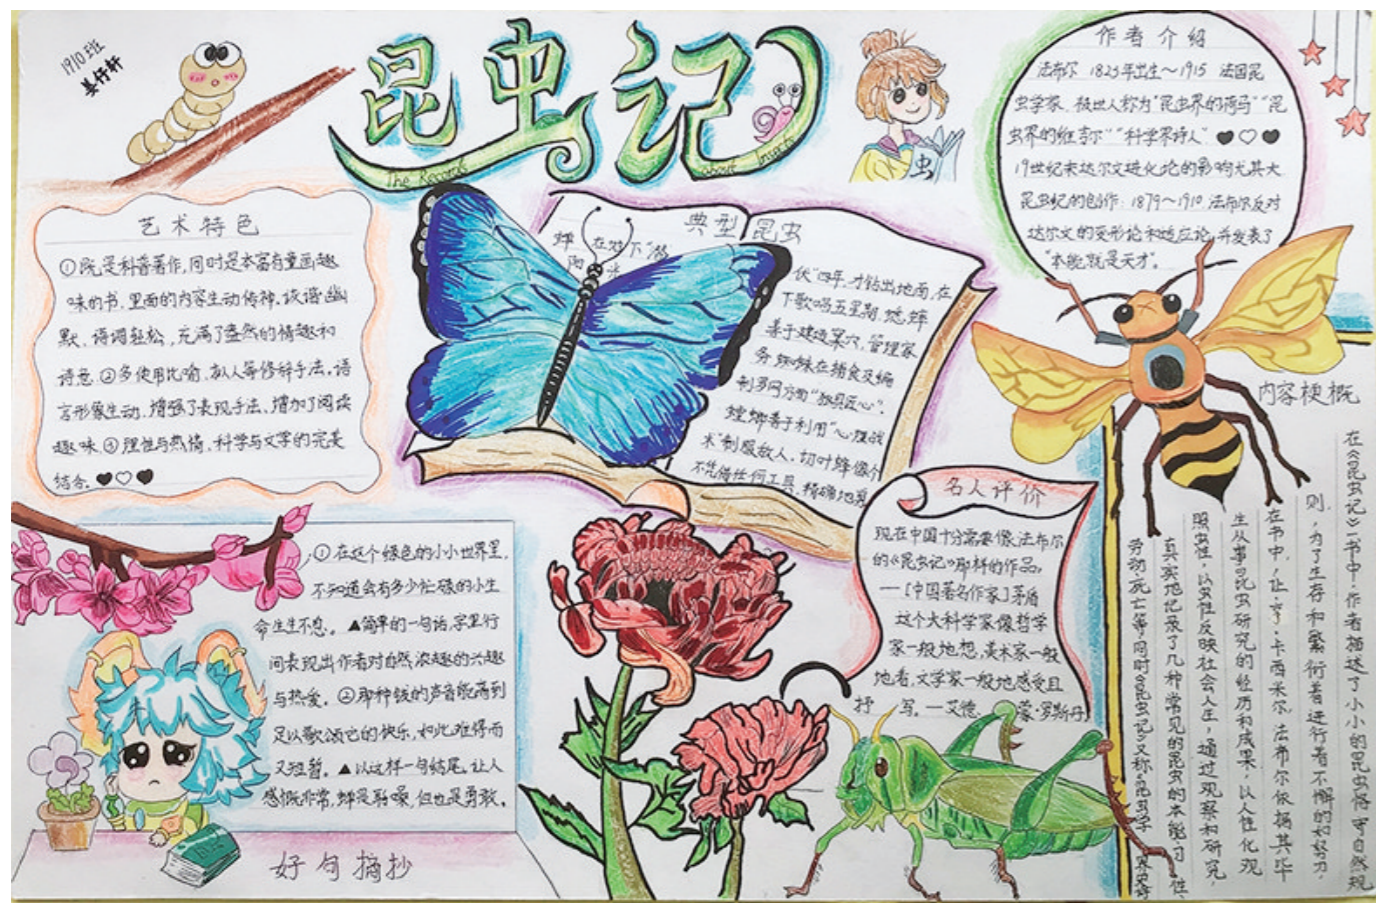 1910班
姜仔轩
昆虫记
The Records about Insects
虫
作者介绍
法布尔 1823年出生～1915 法国昆
虫学家，被世人称为“昆虫界的荷马”“昆
虫界的维吉尔”“科学界诗人”
19世纪末达尔文进化论的影响尤其大
昆虫纪的创作：1879～1910 法布尔反对
达尔文的变形论和适应论，并发表了
“本能，就是天才”。
艺术特色
①既是科普著作，同时是本富有童画趣
味的书，里面的内容生动传神，诙谐幽
默，语调轻松，充满了盎然的情趣和
诗意。②多使用比喻、拟人等修辞手法，语
言形象生动，增强了表现手法、增加了阅读
趣味③理性与热情，科学与文学的完美
结合。
典型昆虫
蝉 在地下“潜
伏”四年，才钻出地面，在
阳
下歌唱五星期，蟋蟀
善于建造巢穴，管理家
务，蜘蛛在捕食及编
制罗网方面“独具匠心”。
螳螂善于利用“心理战
术”制服敌人，切叶蜂像个
不凭借任何工具，精确地剪
名人评价
现在中国十分需要像法布尔
的《昆虫记》那样的作品。
—[中国著名作家]茅盾
这个大科学家像哲学
家一般地想，美术家一般
地看，文学家一般地感受且
抒 写。—艾德 蒙·罗斯丹
内容梗概
在《昆虫记》一书中，作者描述了小小的昆虫恪守自然规
则，为了生存和繁衍着进行着不懈的如努力，
在书中，让·亨·卡西米尔·法布尔依据其毕
生从事昆虫研究的经历和成果，以人性化观
照虫性，以虫性反映社会人生，通过观察和研究，
真实地记录了几种常见的昆虫的本能、习性、
劳动、死亡等同时《昆虫记》又称《昆虫学
①在这个绿色的小小世界里，
不知道会有多少忙碌的小生
命生生不息。▲简单的一句话，字里行
间表现出作者对自然浓趣的兴趣
与热爱。②那种钹的声音能高到
足以歌颂它的快乐，如此难得而
又短暂。▲以这样一句结尾，让人
感慨非常，蝉是聒噪，但也是勇敢。
好句摘抄